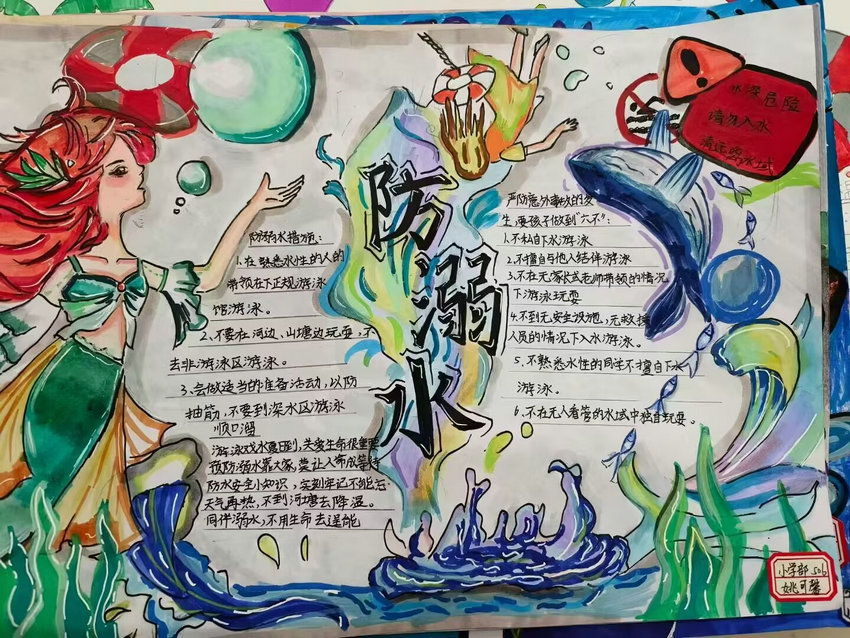 防溺水
防溺水措施：
1.在熟悉水性的人的
带领在下正规游泳
馆游泳。
2、不要在河边、山塘边玩耍，不
去非游泳区游泳。
3、会做适当的准备活动，以防
抽筋，不要到深水区游泳
顺口溜
游泳戏水喜压到，关爱生命很重要
预防溺水靠大家，
防水安全小知识，定刻牢记不能忘
天气再热，不到河塘去降温。
同伴溺水，不用生命去逞能
严防意外事故的发
生，要孩子做到“六不”：
1.不私自下水游泳
2.不擅自与他人结伴游泳
3.不在无家长或老师带领的情况
下游泳玩耍
4.不到无安全设施，无救援
人员的情况下入水游泳。
5、不熟悉水性的同学不擅自下水
游泳。
6、不在无人看管的水域中独自玩耍。
水深危险
请勿入水
请远离水域
小学部 506
姚可馨